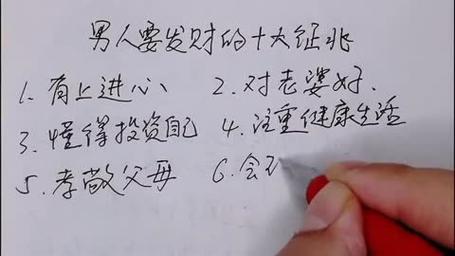 男人要发财的十大征兆
1. 有上进心 2. 对老婆好.
3. 懂得投资自己 4. 注重健康生活
5. 孝敬父母 6. 会